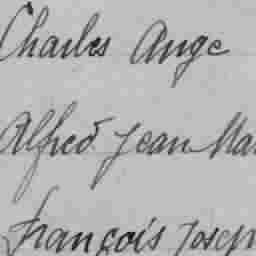 Charles Ange
Alfred Jean Mar
François Joseph